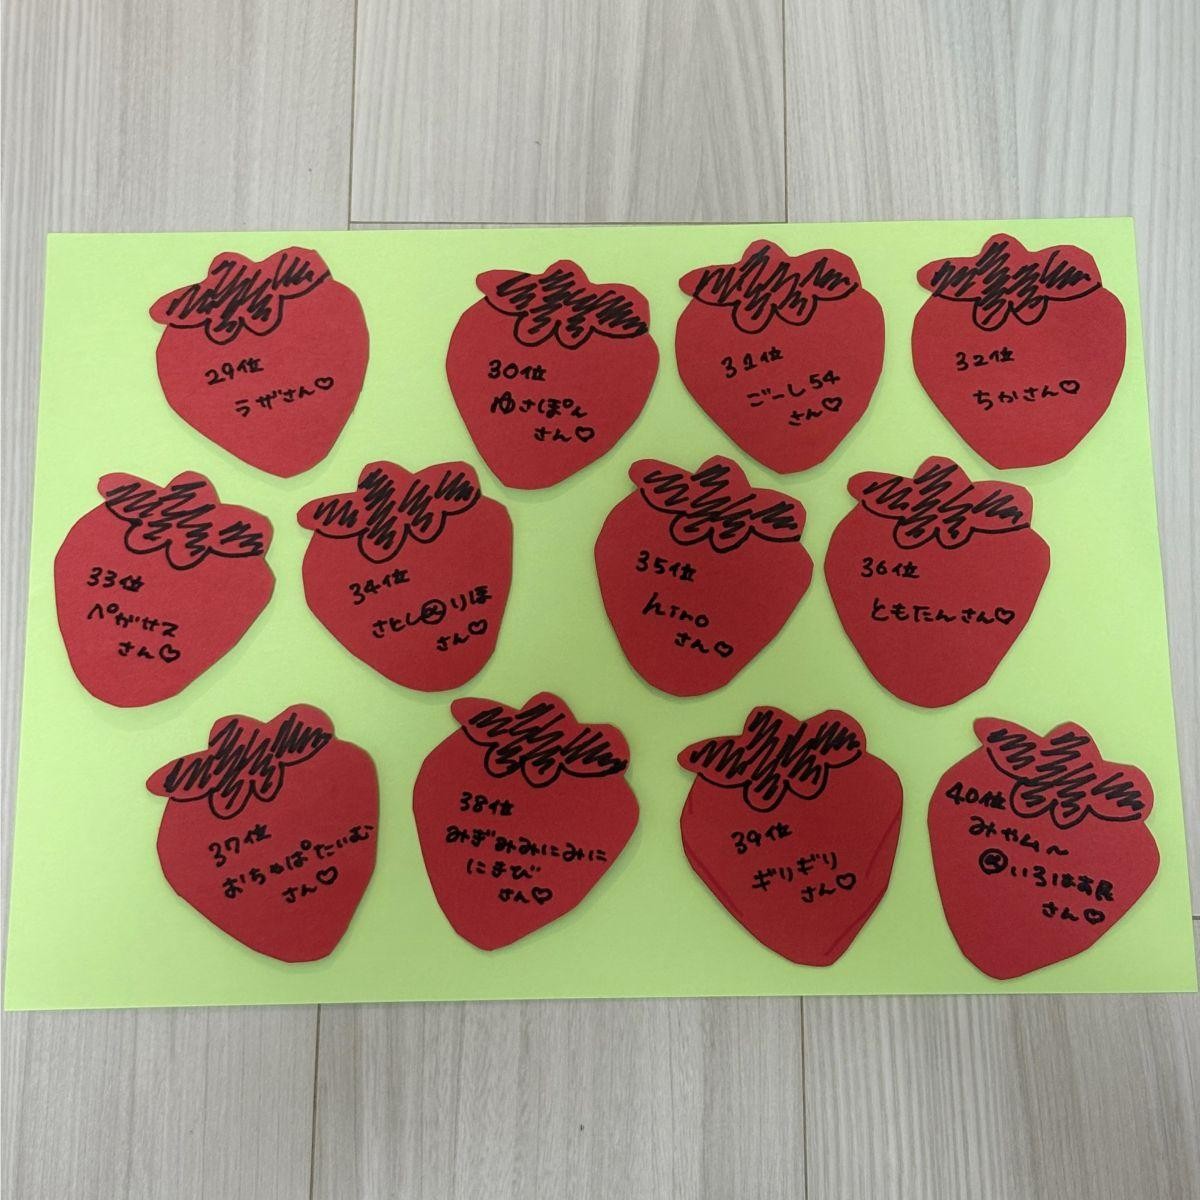 29位
ラザさん♡
30位
ゆさぽん
さん♡
31位
ごーし54
さん♡
32位
ちかさん♡
33位
ペガサス
さん♡
34位
さとし㋱りほ
さん♡
35位
hiro
さん♡
36位
ともたんさん♡
37位
おちゃぱたいむ
さん♡
38位
みぎみみにみに
にきび
さん♡
39位
ギリギリ
さん♡
40位
みやム〜
いろは
さん♡